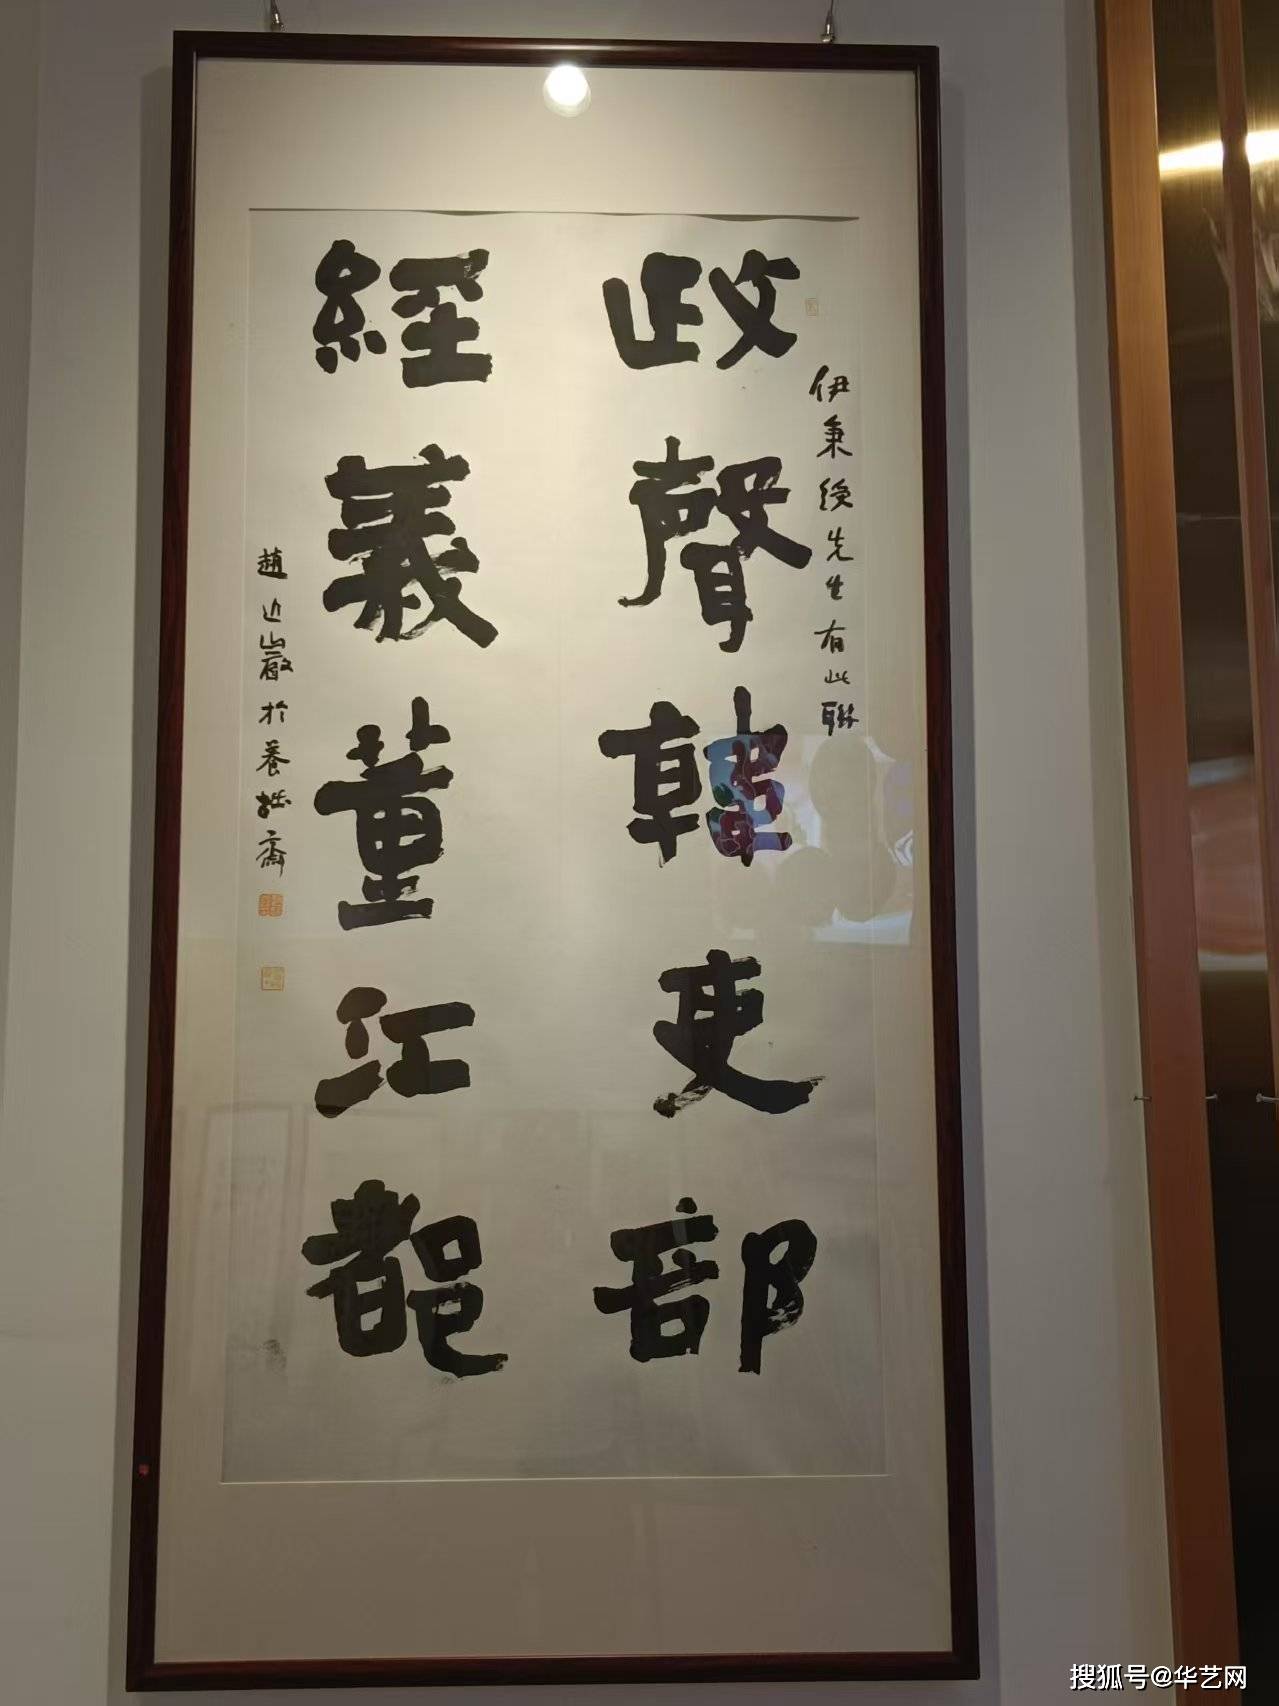 伊秉綬先生有此聯
政聲韓吏部
經義董江都
趙山巖於養拙齋
搜狐号@华艺网